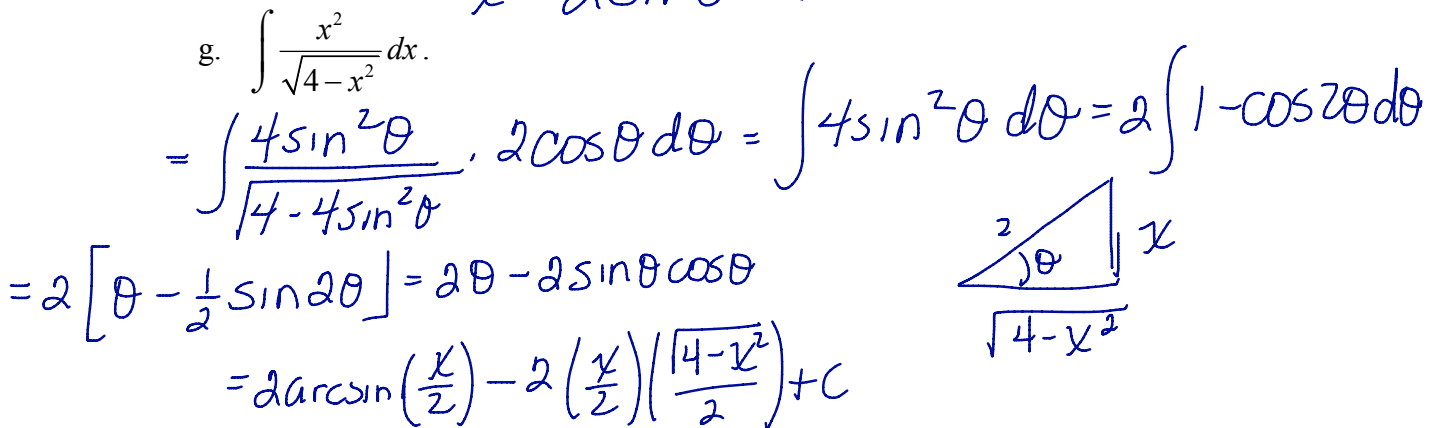 g. ∫ x²/√(4 − x²) dx.
= ∫ 4sin²θ/√(4 - 4sin²θ) · 2cosθ dθ = ∫ 4sin²θ dθ = 2∫ 1 - cos2θ dθ
= 2[θ - 1/2 sin2θ] = 2θ - 2sinθcosθ
2 θ x √(4-x²)
= 2arcsin(x/2) - 2(x/2)(√(4-x²)/2) + C